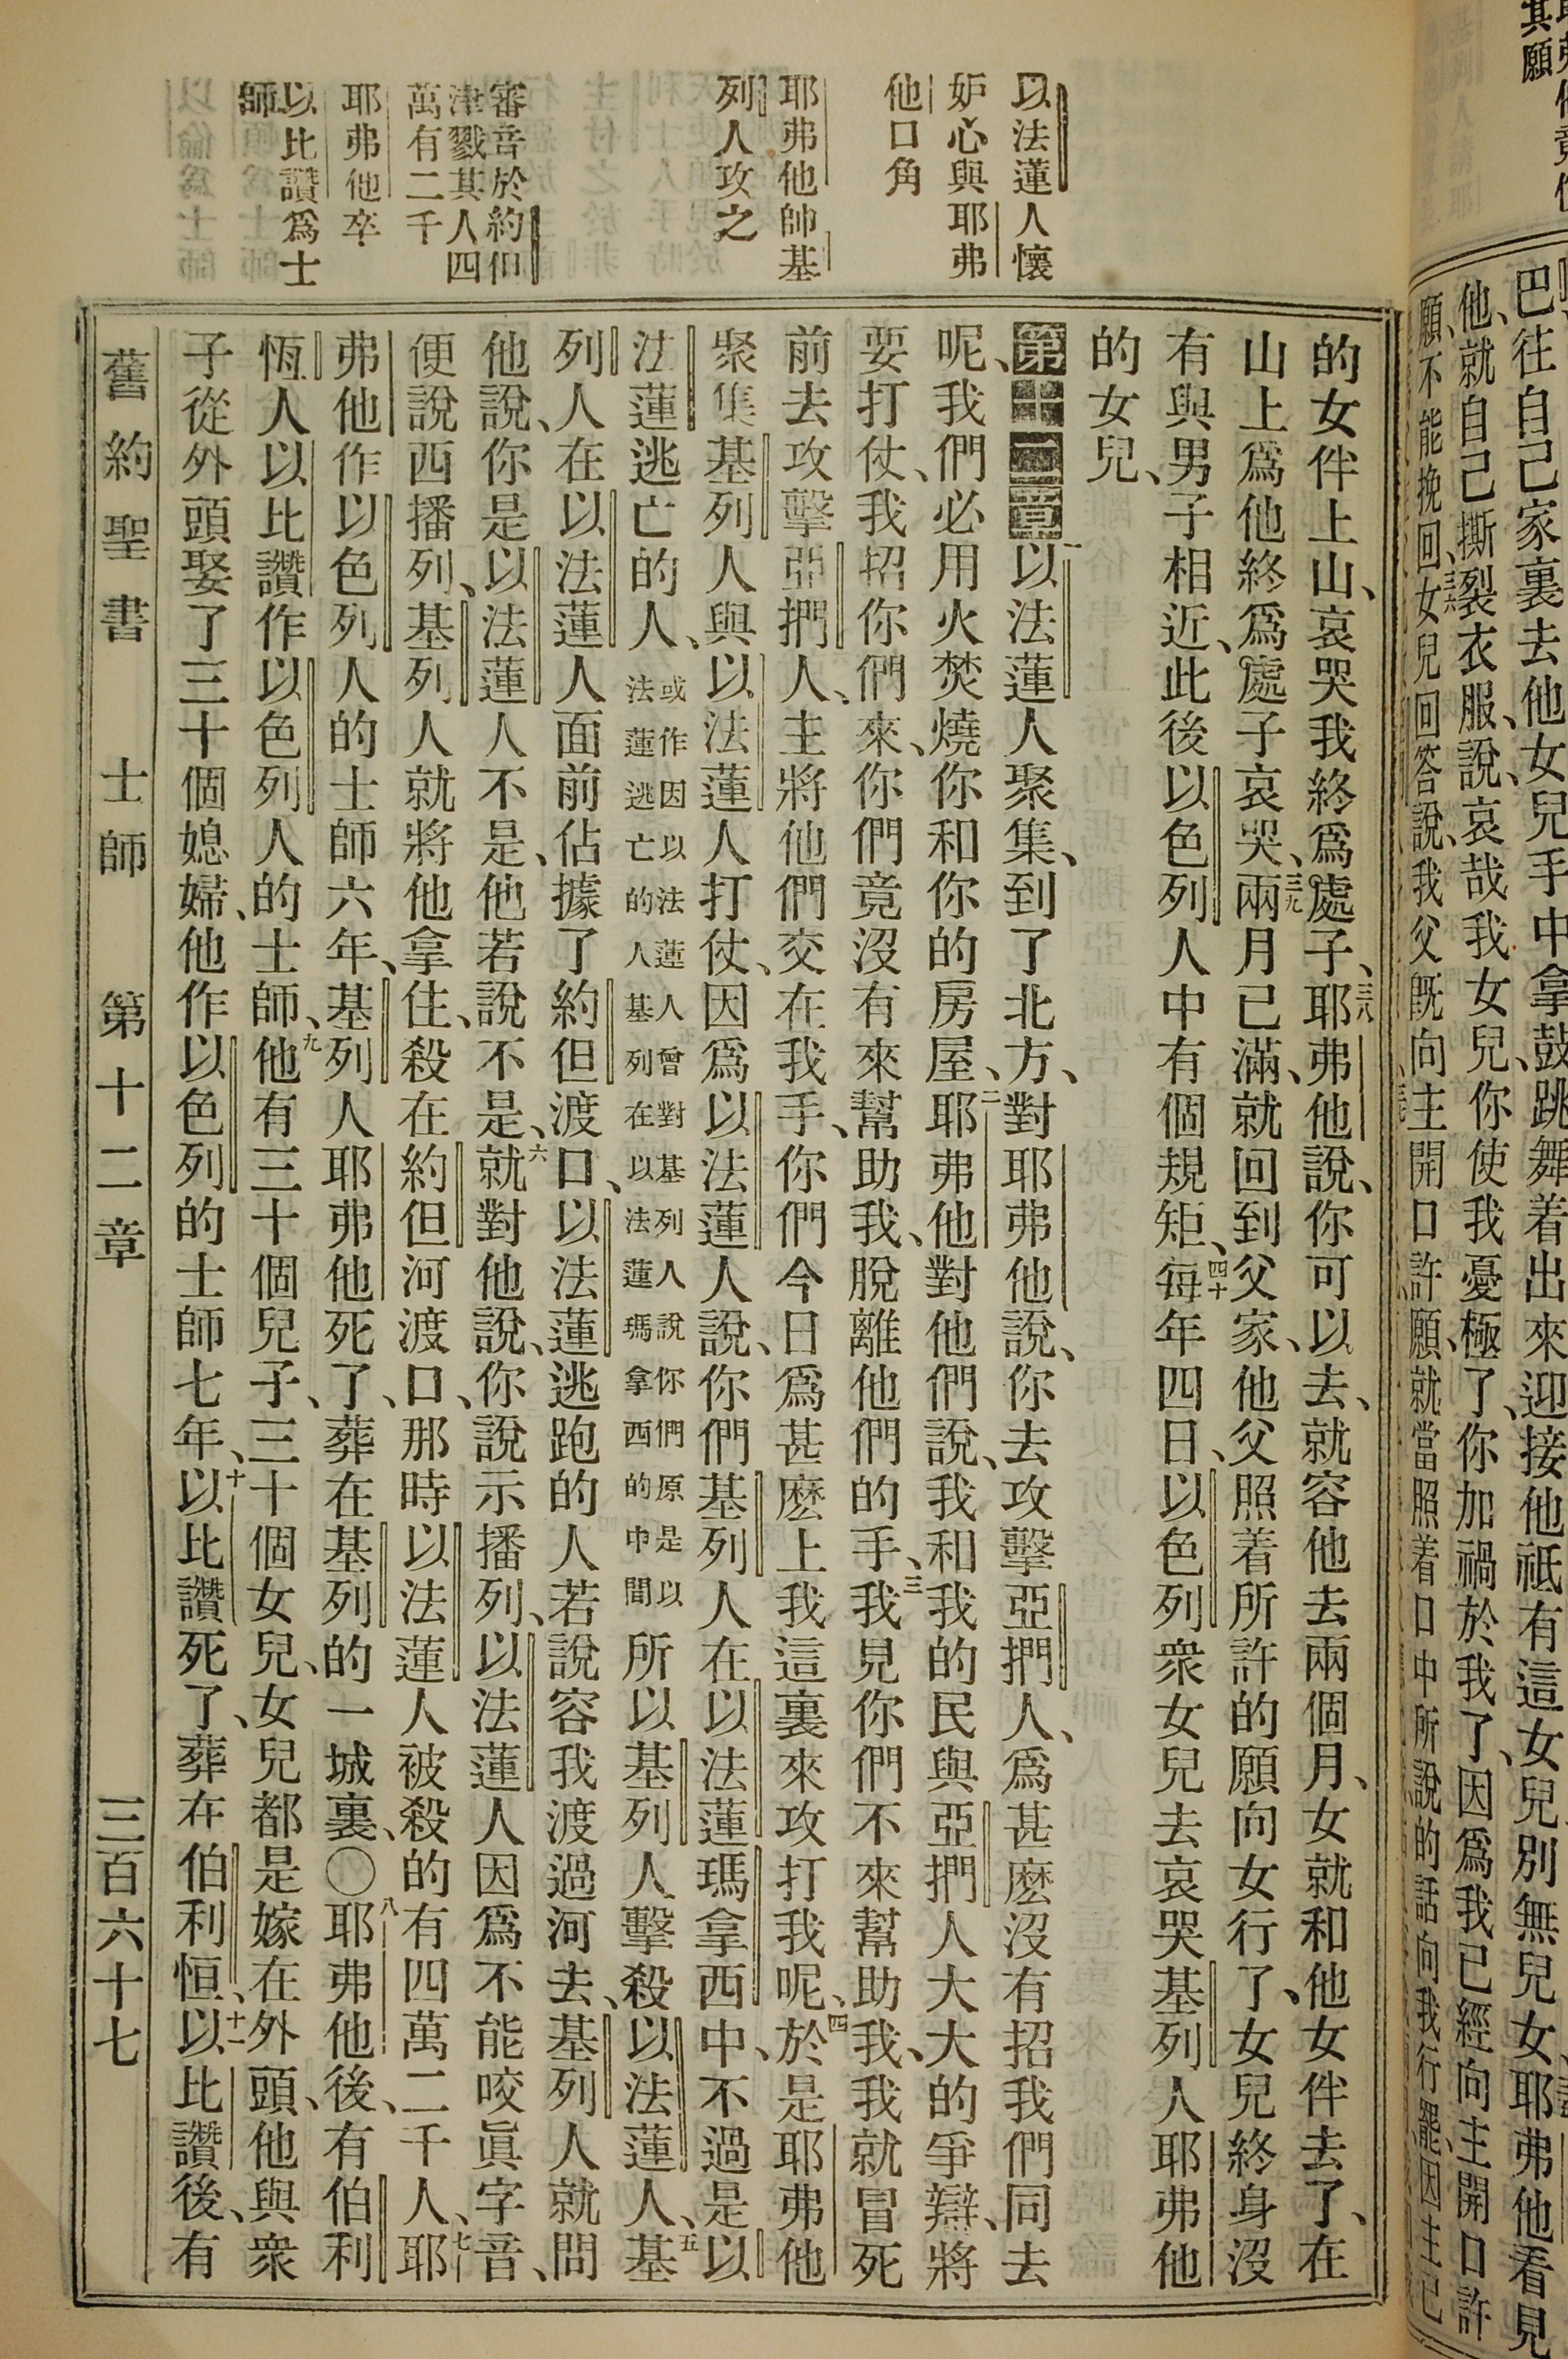 巴、往自己家裏去、他女兒手中拿鼓跳舞着出來迎接他、祗有這女兒、別無兒女、耶弗他看見
他、就自己撕裂衣服、說、哀哉我女兒、你使我憂極了、你加禍於我了、因爲我已經向主開口許
願、不能挽回、女兒回答說、我父旣向主開口許願、就當照着口中所說的話向我行罷、因主已
的女伴上山、哀哭我終爲處子、三八耶弗他說、你可以去、就容他去兩個月、女就和他女伴去了、在
山上爲他終爲處子哀哭、三九兩月已滿、就回到父家、他父照着所許的願向女行了、女兒終身沒
有與男子相近、此後以色列人中有個規矩、四十每年四日、以色列衆女兒去哀哭基列人耶弗他
的女兒、
第十二章一以法蓮人聚集、到了北方、對耶弗他說、你去攻擊亞捫人、爲甚麽沒有招我們同去
呢、我們必用火焚燒你和你的房屋、二耶弗他對他們說、我和我的民與亞捫人大大的爭辯、將
要打仗、我招你們來、你們竟沒有來幫助我、脫離他們的手、三我見你們不來幫助我、我就冒死
前去攻擊亞捫人、主將他們交在我手、你們今日爲甚麽上我這裏來攻打我呢、四於是耶弗他
聚集基列人與以法蓮人打仗、因爲以法蓮人說、你們基列人在以法蓮瑪拿西中、不過是以
法蓮逃亡的人、或作因以法蓮人曾對基列人說你們原是以法蓮逃亡的人基列在以法蓮瑪拿西的中間所以基列人擊殺以法蓮人、五基
列人在以法蓮人面前佔據了約但渡口、以法蓮逃跑的人若說容我渡過河去、基列人就問
他說、你是以法蓮人不是、他若說不是、六就對他說、你說示播列、以法蓮人因爲不能咬眞字音、
便說西播列、基列人就將他拿住、殺在約但河渡口、那時以法蓮人被殺的有四萬二千人、七耶
弗他作以色列人的士師六年、基列人耶弗他死了、葬在基列的一城裏、〇八耶弗他後、有伯利
恆人以比讚作以色列人的士師、九他有三十個兒子、三十個女兒、女兒都是嫁在外頭、他與衆
子從外頭娶了三十個媳婦、他作以色列的士師七年、十以比讚死了、葬在伯利恒、十一以比讚後、有
舊約聖書 士師 第十二章 三百六十七
以法蓮人懷
妒心與耶弗
他口角
耶弗他帥基
列人攻之
審音於約但
津戮其人四
萬有二千
耶弗他卒
以比讚爲士
師